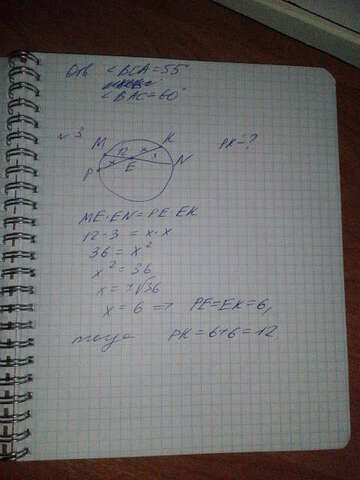 Отв. <BCA = 55°
<BAC = 60°
№ 3
PK - ?
M K
12 x
x E 3 N
P
ME·EN = PE·EK
12·3 = x·x
36 = x²
x² = 36
x = √36
x = 6 => PE = EK = 6,
тогда PK = 6+6 = 12